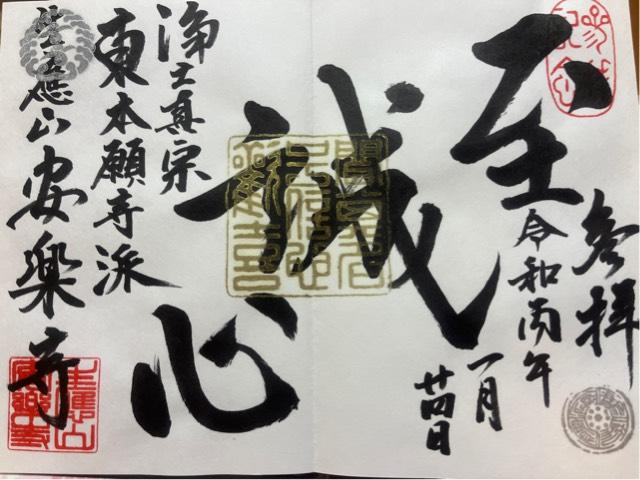 參拝
令和丙午
一月
廿四日
至誠心
浄土真宗
東本願寺派
應山
安楽寺